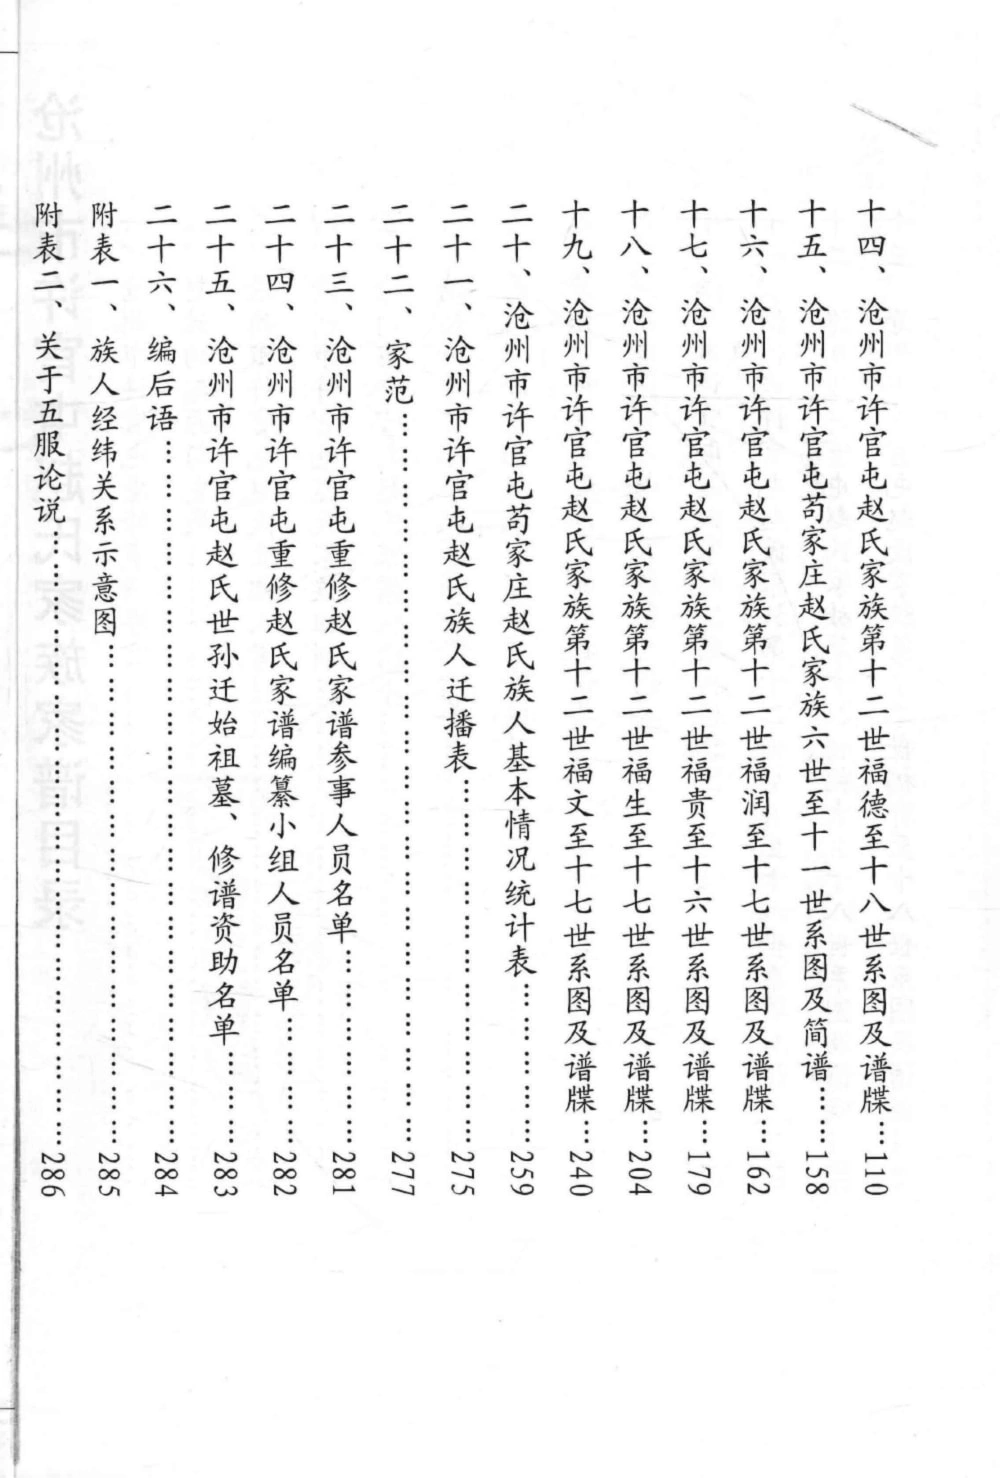 十四、沧州市许官屯赵氏家族第十二世福德至十八世系图及谱牒…110
十五、沧州市许官屯苟家庄赵氏家族六世至十一世系图及简谱……158
十六、沧州市许官屯赵氏家族第十二世福润至十七世系图及谱牒…162
十七、沧州市许官屯赵氏家族第十二世福贵至十六世系图及谱牒…179
十八、沧州市许官屯赵氏家族第十二世福生至十七世系图及谱牒…204
十九、沧州市许官屯赵氏家族第十二世福文至十七世系图及谱牒…240
二十、沧州市许官屯苟家庄赵氏族人基本情况统计表……………259
二十一、沧州市许官屯赵氏族人迁播表……………………………275
二十二、家范………………………………………………………………277
二十三、沧州市许官屯重修赵氏家谱参事人员名单………………281
二十四、沧州市许官屯重修赵氏家谱编纂小组人员名单…………282
二十五、沧州市许官屯赵氏世孙迁始祖墓、修谱资助名单………283
二十六、编后语……………………………………………………………284
附表一、族人经纬关系示意图……………………………………………285
附表二、关于五服论说……………………………………………………286